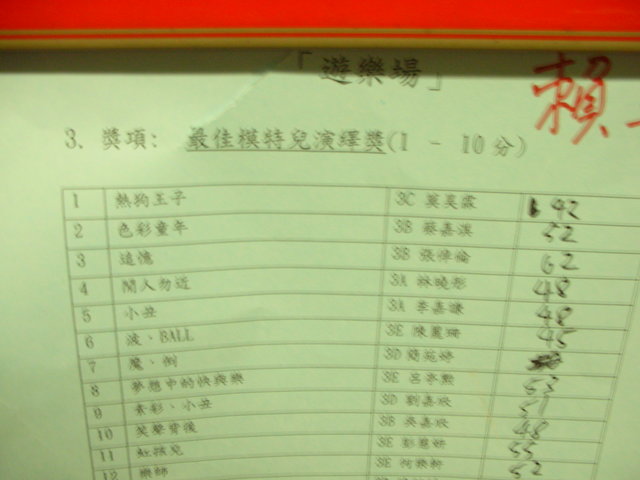 「遊樂場」
賴
3. 獎項: 最佳模特兒演繹獎(1 - 10分)
1 熱狗王子 3C 莫昊霖 42
2 色彩童年 3B 蔡嘉淇 52
3 追憶 3B 張倬倫 62
4 閒人勿近 3A 林曉彤 48
5 小丑 3A 李嘉謙 48
6 波、BALL 3E 陳麗珊 45
7 魔、倒 3D
8 夢想中的快樂樂 3E 53
9 素彩、小丑 3D 劉嘉欣 51
10 笑聲背後 3B 吳嘉欣 48
11 3E 55
12 樂師 3E 52